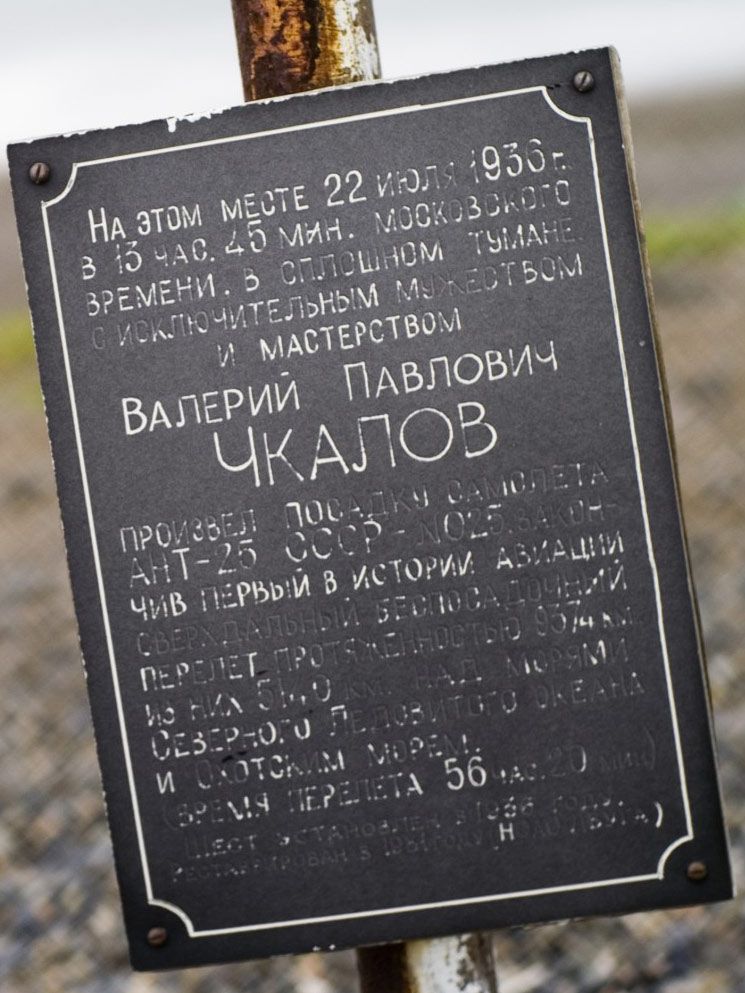 На этом месте 22 июля 1936 г.
в 13 час. 45 мин. московского
времени. в сплошном тумане
с исключительным мужеством
и мастерством
Валерий Павлович
Чкалов
произвел посадку самолета
АНТ-25 СССР - NО25. закон-
чив первый в истории авиации
сверхдальный беспосадочный
перелет протяженностью 9374 км
из них км. над морями
Северного Ледовитого океана
и Охотским морем.
(время перелета 56 час. 20 мин)
Шест установлен в 1936 году.
реставрирован в 1981 году